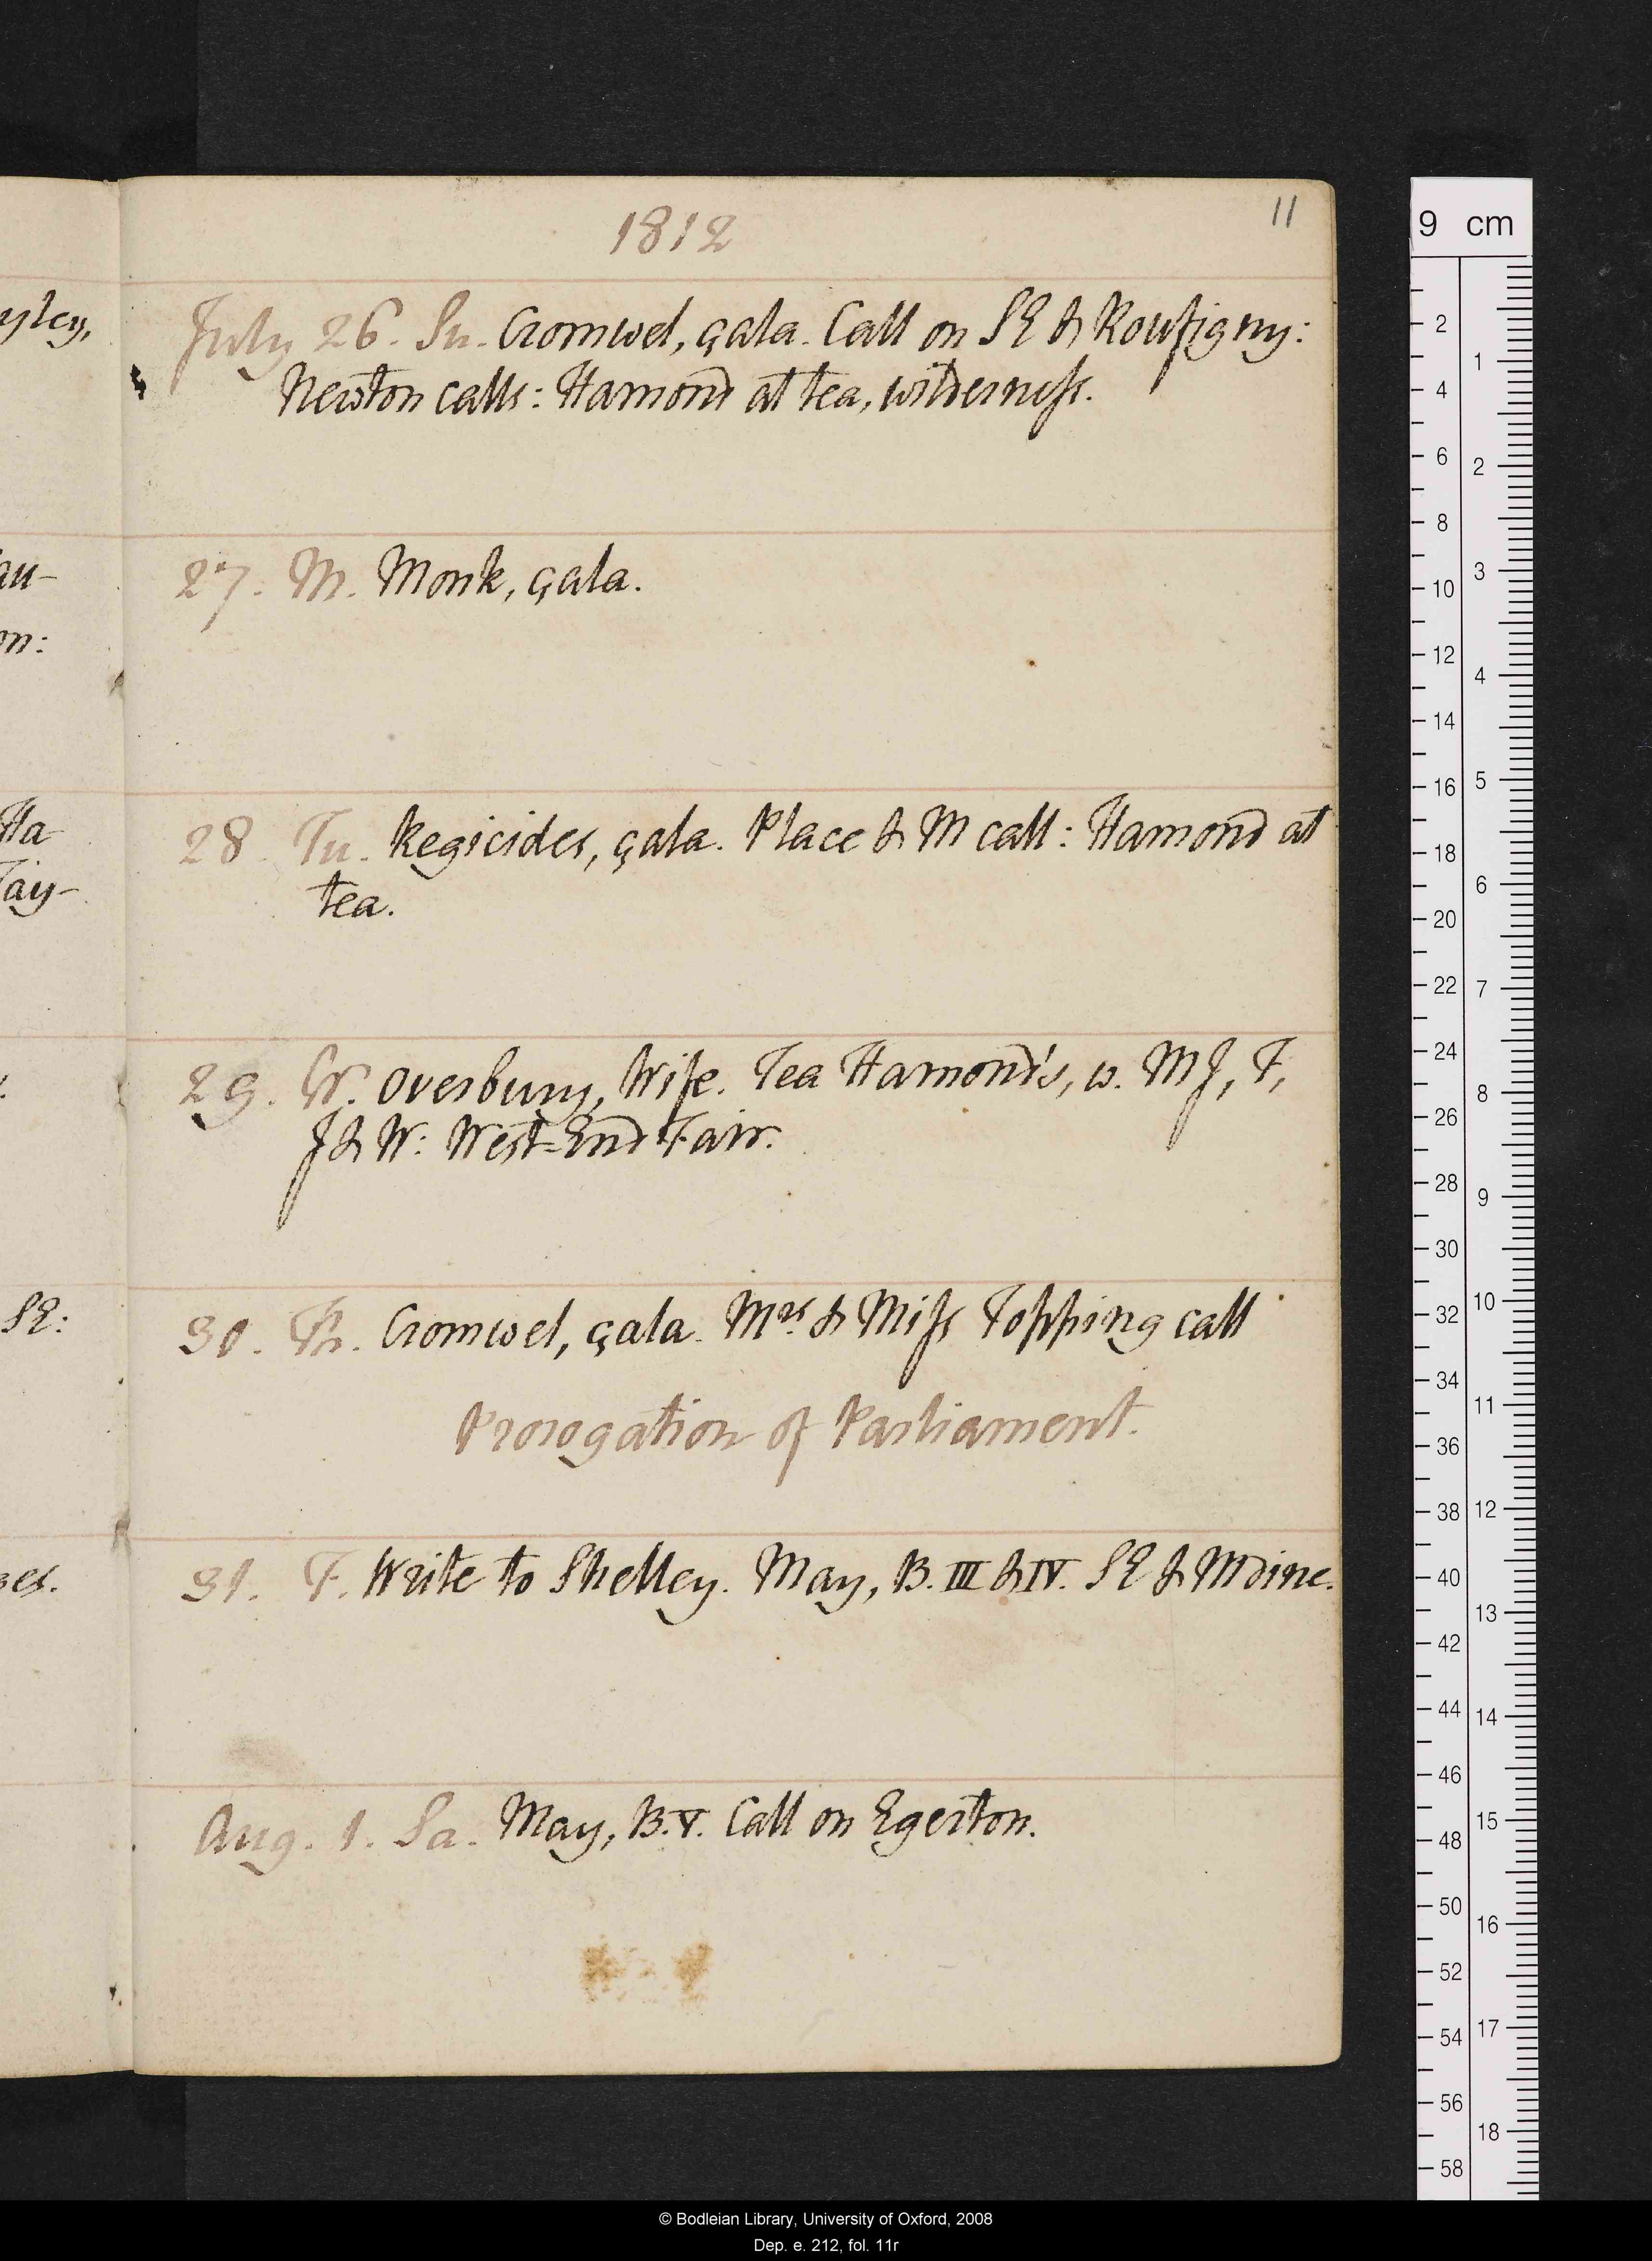 11
1812
July 26. Su. Cromwel, çala. Call on SE & Roufigny:
Newton calls: Hamond at tea, wilderness.
27. M. Monk, çala.
28. Tu. Regicides, çala. Place & M call: Hamond at
tea.
29. W. Overbury, Wife. Tea Hamond's, w. MJ, F,
J & W: West-End Fair.
30. Th. Cromwel, çala. Mrs & Miss Topping call
Prorogation of Parliament.
31. F. Write to Shelley. May, B. III & IV. SE & M dine.
Aug. 1. Sa. May, B. V. Call on Egerton.
yley,
au-
on:
Ha
Tay-
SE:
ges.
9 cm
2
4
6
8
10
12
14
16
18
20
22
24
26
28
30
32
34
36
38
40
42
44
46
48
50
52
54
56
58
1
2
3
4
5
6
7
8
9
10
11
12
13
14
15
16
17
18
© Bodleian Library, University of Oxford, 2008
Dep. e. 212, fol. 11r